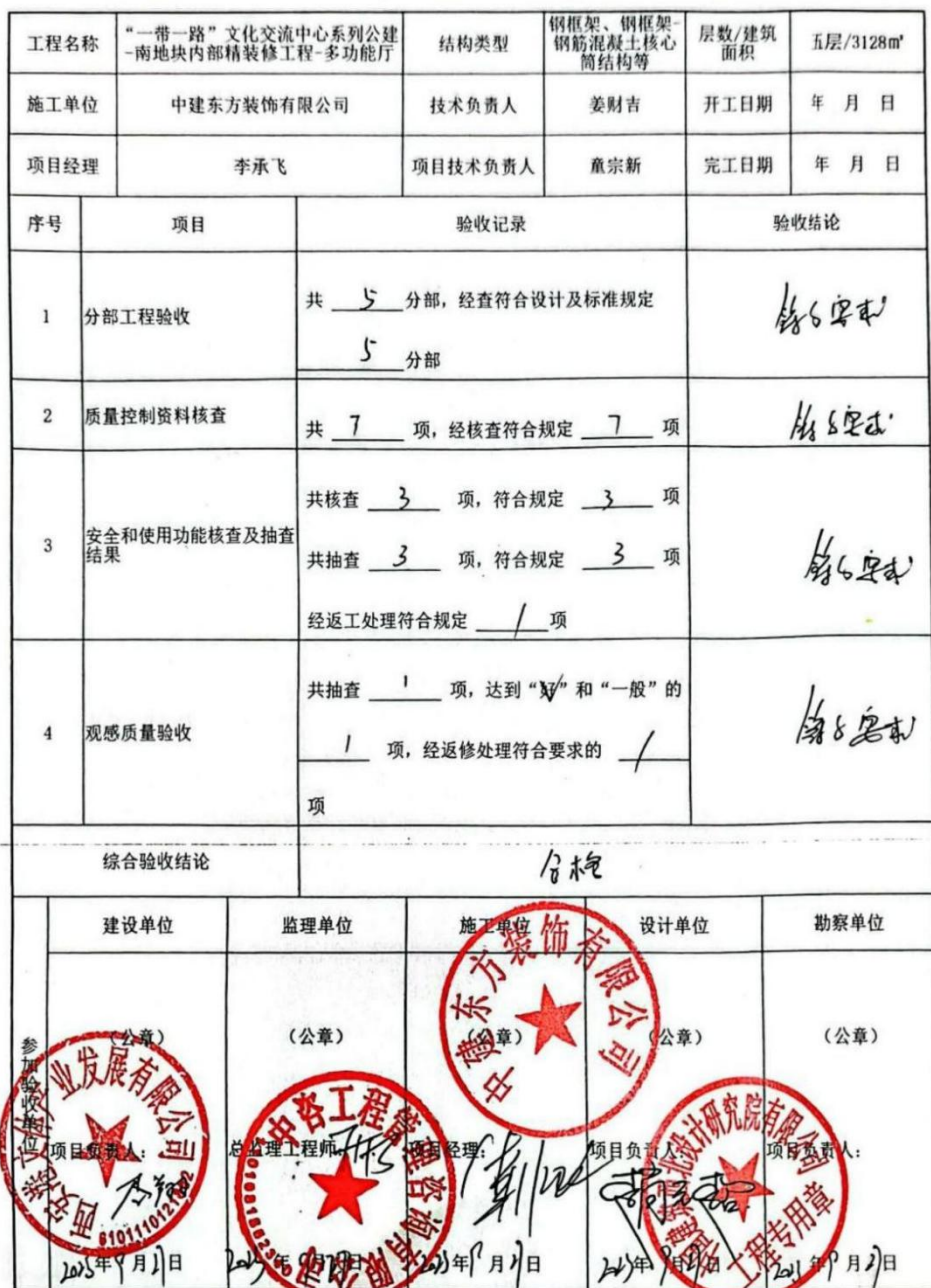 工程名称
“一带一路”文化交流中心系列公建
-南地块内部精装修工程-多功能厅
结构类型
钢框架、钢框架-
钢筋混凝土核心
筒结构等
层数/建筑
面积
五层/3128㎡
施工单位
中建东方装饰有限公司
技术负责人
姜财吉
开工日期
年 月 日
项目经理
李承飞
项目技术负责人
童宗新
完工日期
年 月 日
序号
项目
验收记录
验收结论
1
分部工程验收
共 5 分部，经查符合设计及标准规定
5 分部
符合要求
2
质量控制资料核查
共 7 项，经核查符合规定 7 项
符合要求
3
安全和使用功能核查及抽查
结果
共核查 3 项，符合规定 3 项
共抽查 3 项，符合规定 3 项
经返工处理符合规定 / 项
符合要求
4
观感质量验收
共抽查 1 项，达到“好”和“一般”的
1 项，经返修处理符合要求的 /
项
符合要求
综合验收结论
合格
参加验收单位
建设单位
监理单位
施工单位
设计单位
勘察单位
（公章）
（公章）
（公章）
（公章）
（公章）
项目负责人：
总监理工程师
项目经理：
项目负责人：
项目负责人：
年 月 日
年 月 日
年 月 日
年 月 日
年 月 日
业发展有限公司
中咨工程管理咨询有限
中建东方装饰有限公司
北设计研究院有限公司
工程专用章